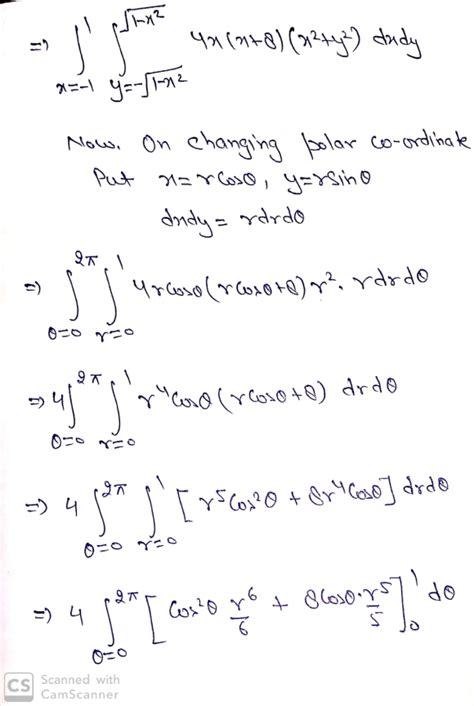 ⇒ ∫_{x=-1}^{1} ∫_{y=-√1-x²}^{√1-x²} 4x(x+8)(x²+y²) dxdy
Now. On changing polar co-ordinate
Put x=rcosθ, y=rsinθ
dxdy = rdrdθ
⇒ ∫_{θ=0}^{2π} ∫_{r=0}^{1} 4rcosθ(rcosθ+8)r². rdrdθ
⇒ 4∫_{θ=0}^{2π} ∫_{r=0}^{1} r⁴cosθ(rcosθ+8) drdθ
⇒ 4 ∫_{θ=0}^{2π} ∫_{r=0}^{1} [r⁵cos²θ + 8r⁴cosθ] drdθ
⇒ 4 ∫_{θ=0}^{2π} [cos²θ r⁶/6 + 8cosθ·r⁵/5]₀¹ dθ
CS Scanned with
CamScanner